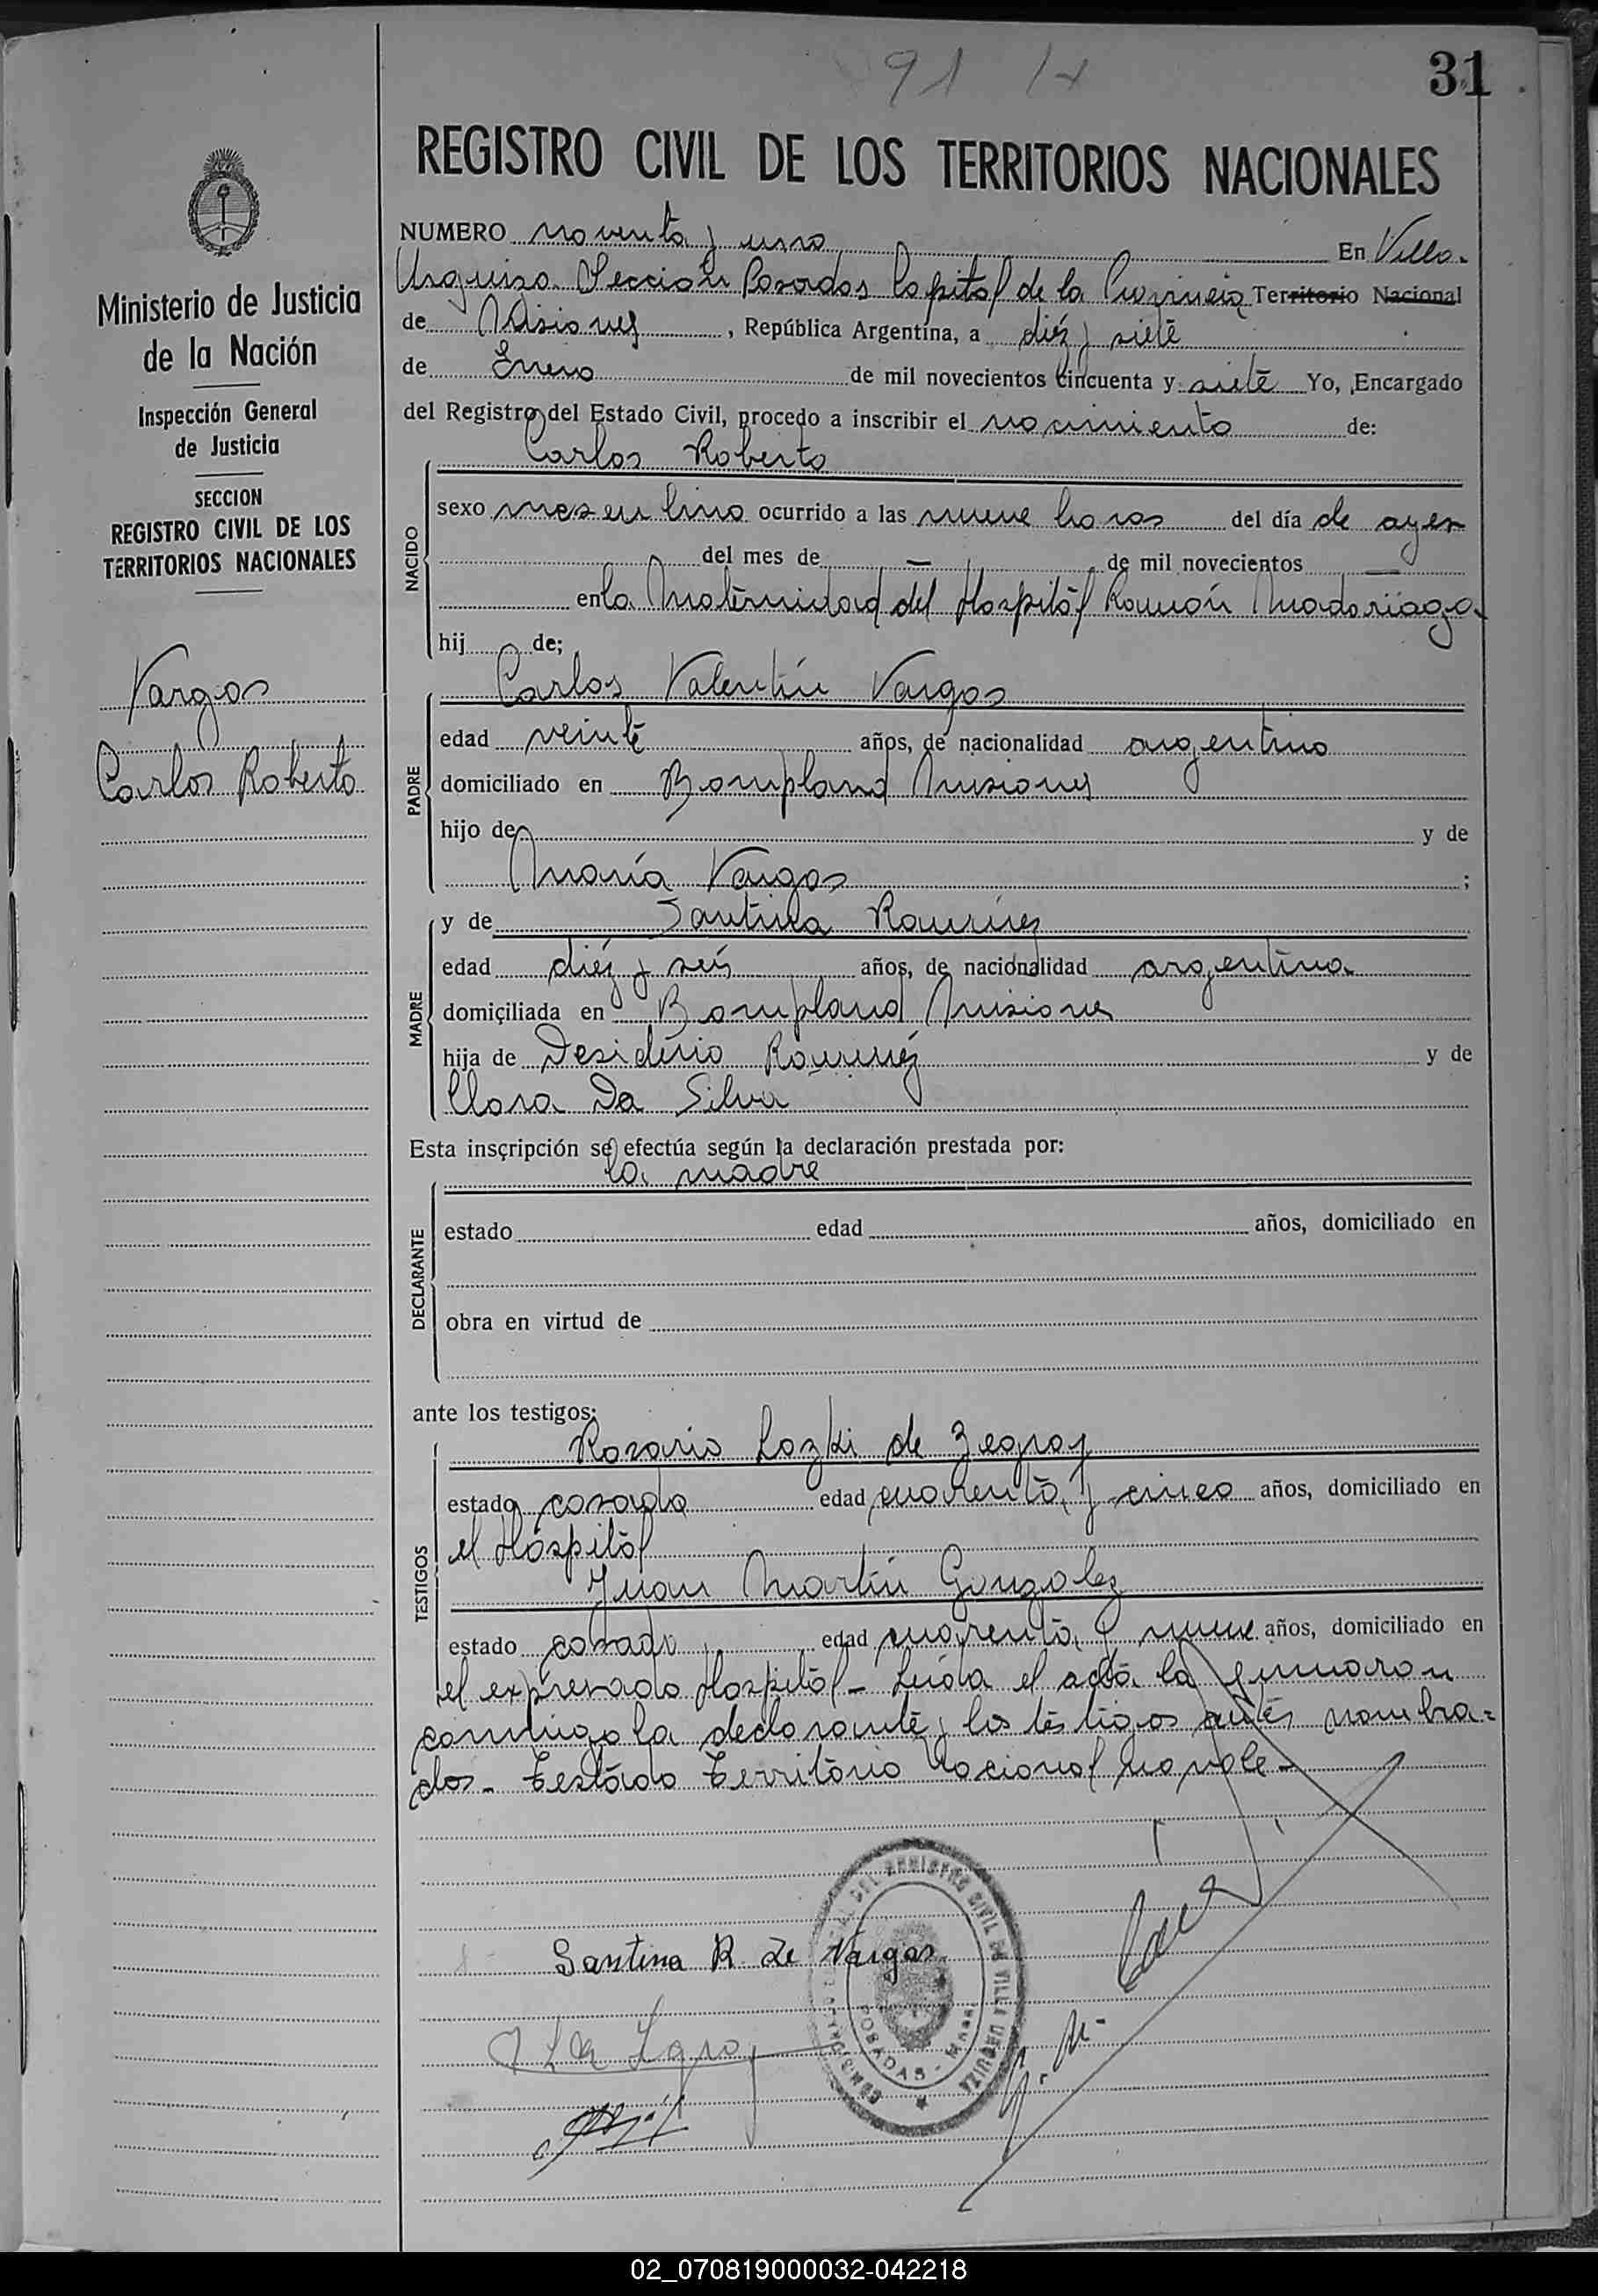 91
31
REGISTRO CIVIL DE LOS TERRITORIOS NACIONALES
Ministerio de Justicia
de la Nación
Inspección General
de Justicia
SECCION
REGISTRO CIVIL DE LOS
TERRITORIOS NACIONALES
Vargas
Carlos Roberto
NUMERO noventa y uno En Villa
Urquiza Sección Posadas Capital de la Provincia Territorio Nacional
de Misiones, República Argentina, a diez y siete
de Enero de mil novecientos cincuenta y siete Yo, Encargado
del Registro del Estado Civil, procedo a inscribir el nacimiento de:
Carlos Roberto
NACIDO
sexo masculino ocurrido a las nueve horas del día de ayer
del mes de — de mil novecientos —
en la Maternidad del Hospital Ramón Madariaga
hij de;
Carlos Valentín Vargas
PADRE
edad veinte años, de nacionalidad argentino
domiciliado en Bompland Misiones
hijo de y de
María Vargas ;
y de Santina Ramírez
MADRE
edad diez y seis años, de nacionalidad argentina
domiciliada en Bompland Misiones
hija de Desiderio Ramírez y de
Clara Da Silva
Esta inscripción se efectúa según la declaración prestada por:
la madre
DECLARANTE
estado edad años, domiciliado en
obra en virtud de
ante los testigos:
Rosario Lozki de Zegray
TESTIGOS
estado casada edad cuarenta y cinco años, domiciliado en
el Hospital
Juan Martín Gonzalez
estado casado edad cuarenta y nueve años, domiciliado en
el expresado Hospital - Leída el acta la firmaron
conmigo la declarante y los testigos antes nombra=
dos - Testado Territorio Nacional no vale -
Santina R de Vargas
DEL REGISTRO CIVIL DE VILLA URQUIZA
POSADAS - Mnes
02_070819000032-042218